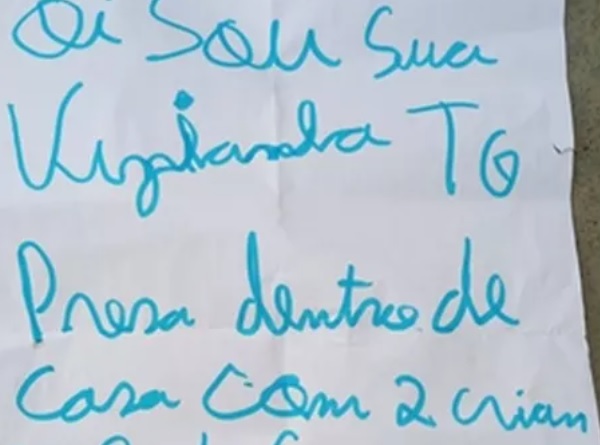 Oi Sou Sua
Vizinha TG
Presa dentro de
Casa Com 2 crian